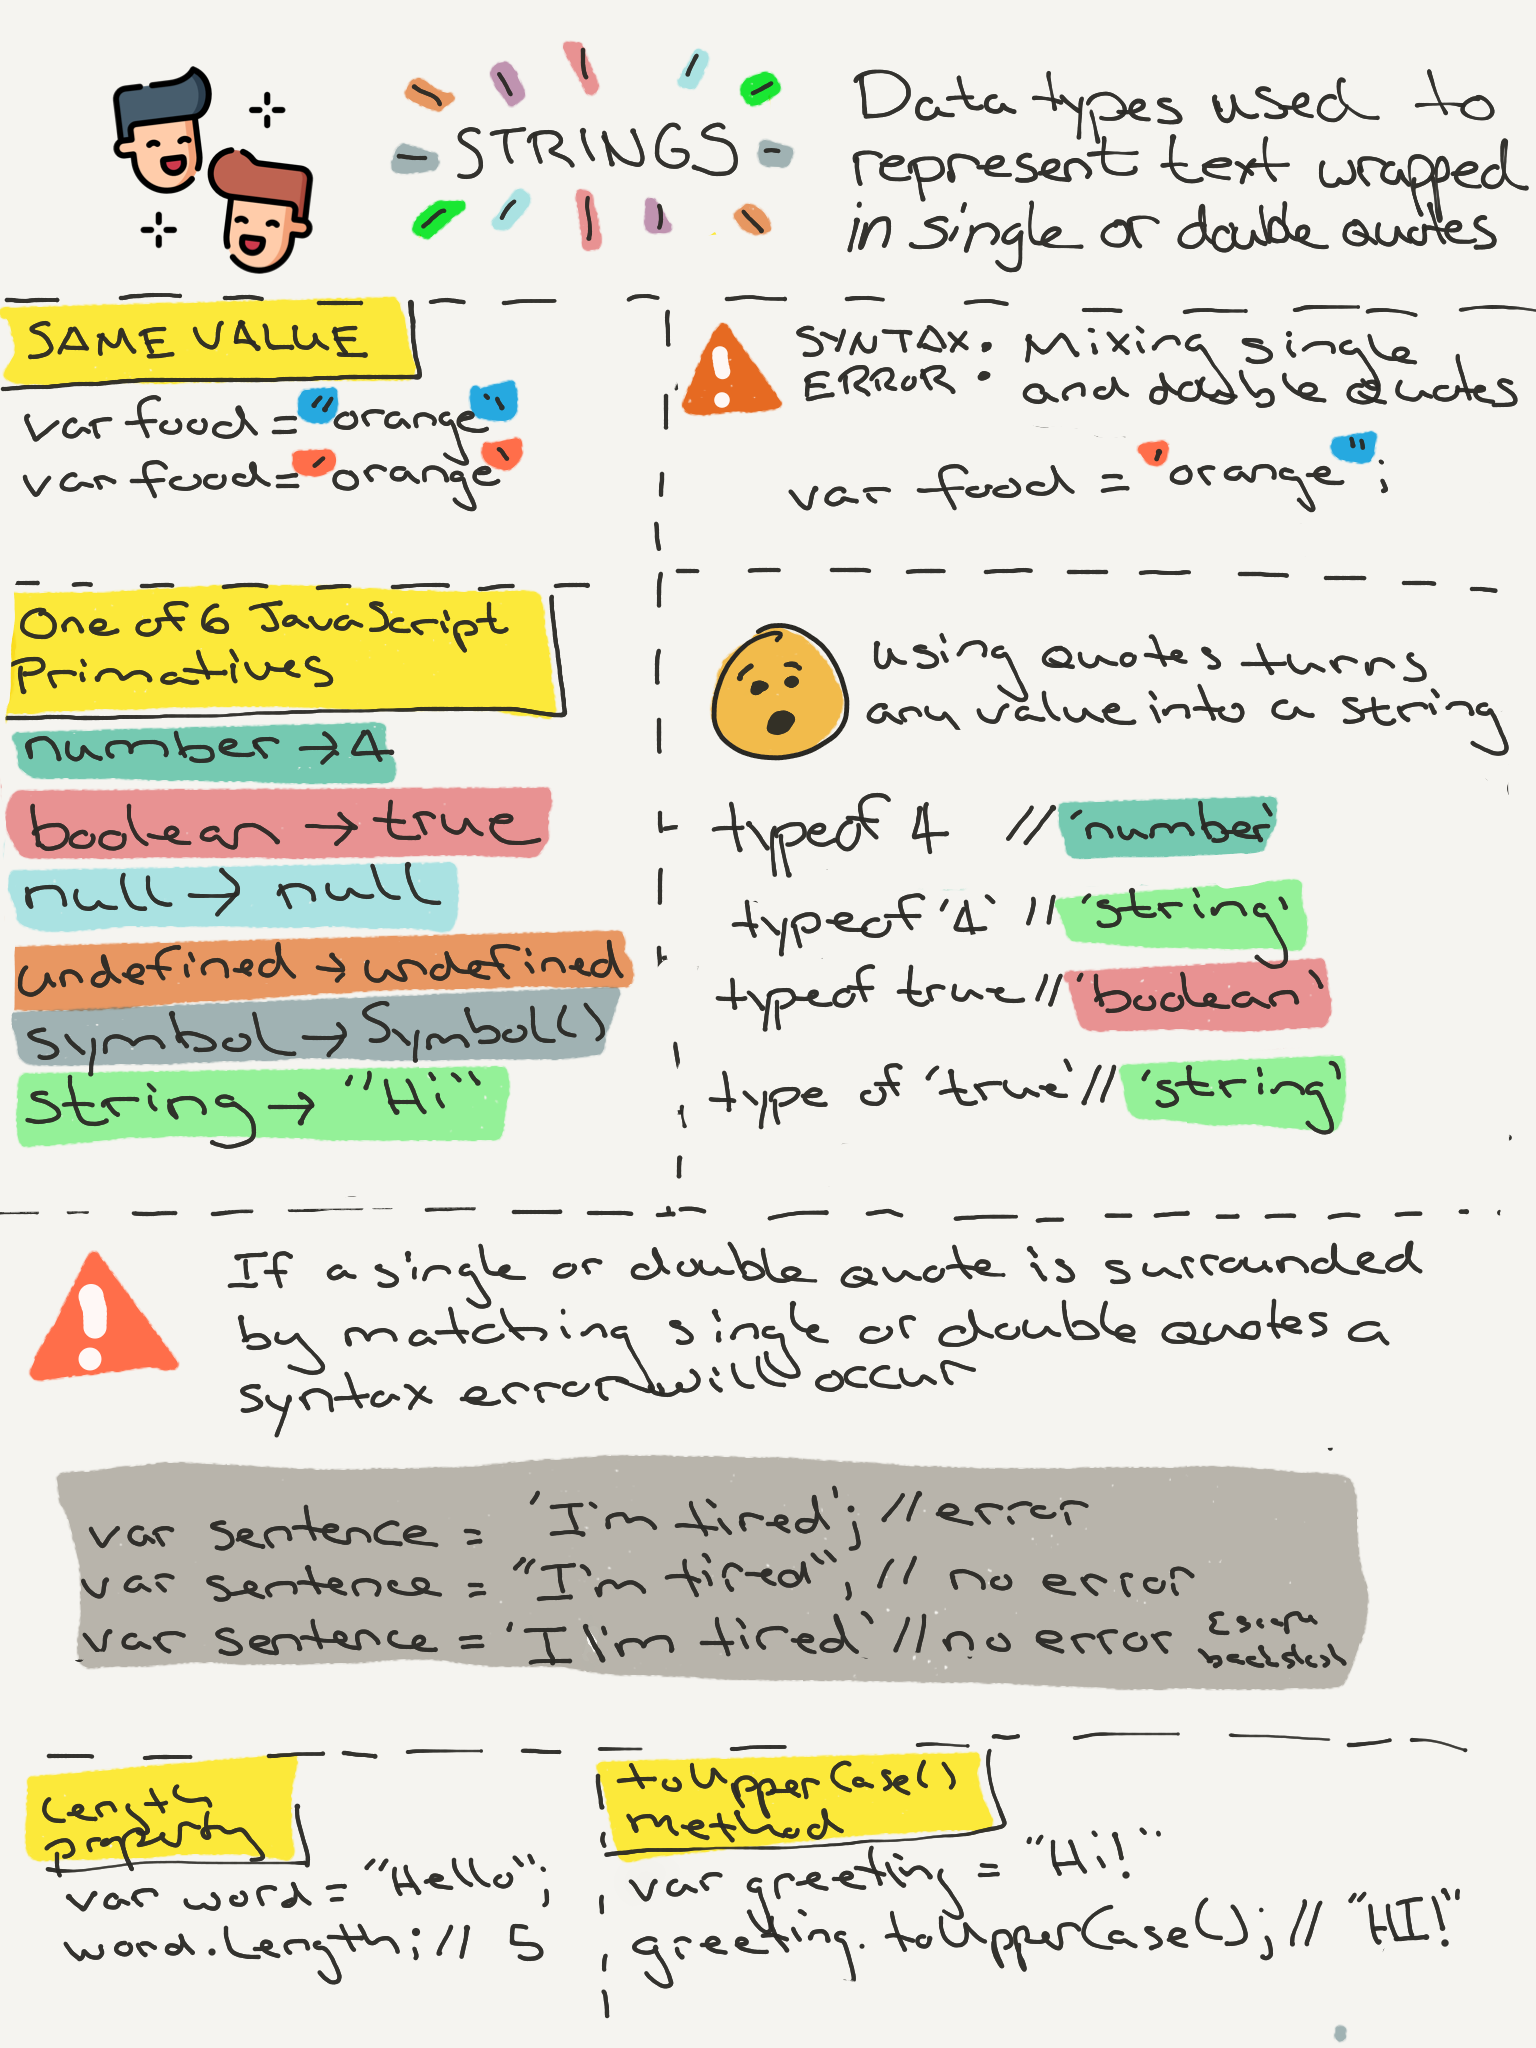 STRINGS
Data types used to
represent text wrapped
in single or double quotes
SAME VALUE
var food = "orange"
var food = 'orange'
SYNTAX ERROR: Mixing single
and double quotes
var food = 'orange";
One of 6 JavaScript
Primatives
number → 4
boolean → true
null → null
undefined → undefined
symbol → Symbol()
string → "Hi"
using quotes turns
any value into a string
typeof 4 // 'number'
typeof '4' // 'string'
typeof true // 'boolean'
type of 'true' // 'string'
If a single or double quote is surrounded
by matching single or double quotes a
syntax error will occur
var sentence = 'I'm tired'; // error
var sentence = "I'm tired"; // no error
var sentence = 'I\'m tired' // no error Escape
backslash
Length
property
var word = "Hello";
word.length; // 5
toUpperCase()
method
var greeting = "Hi!"
greeting.toUpperCase(); // "HI!"